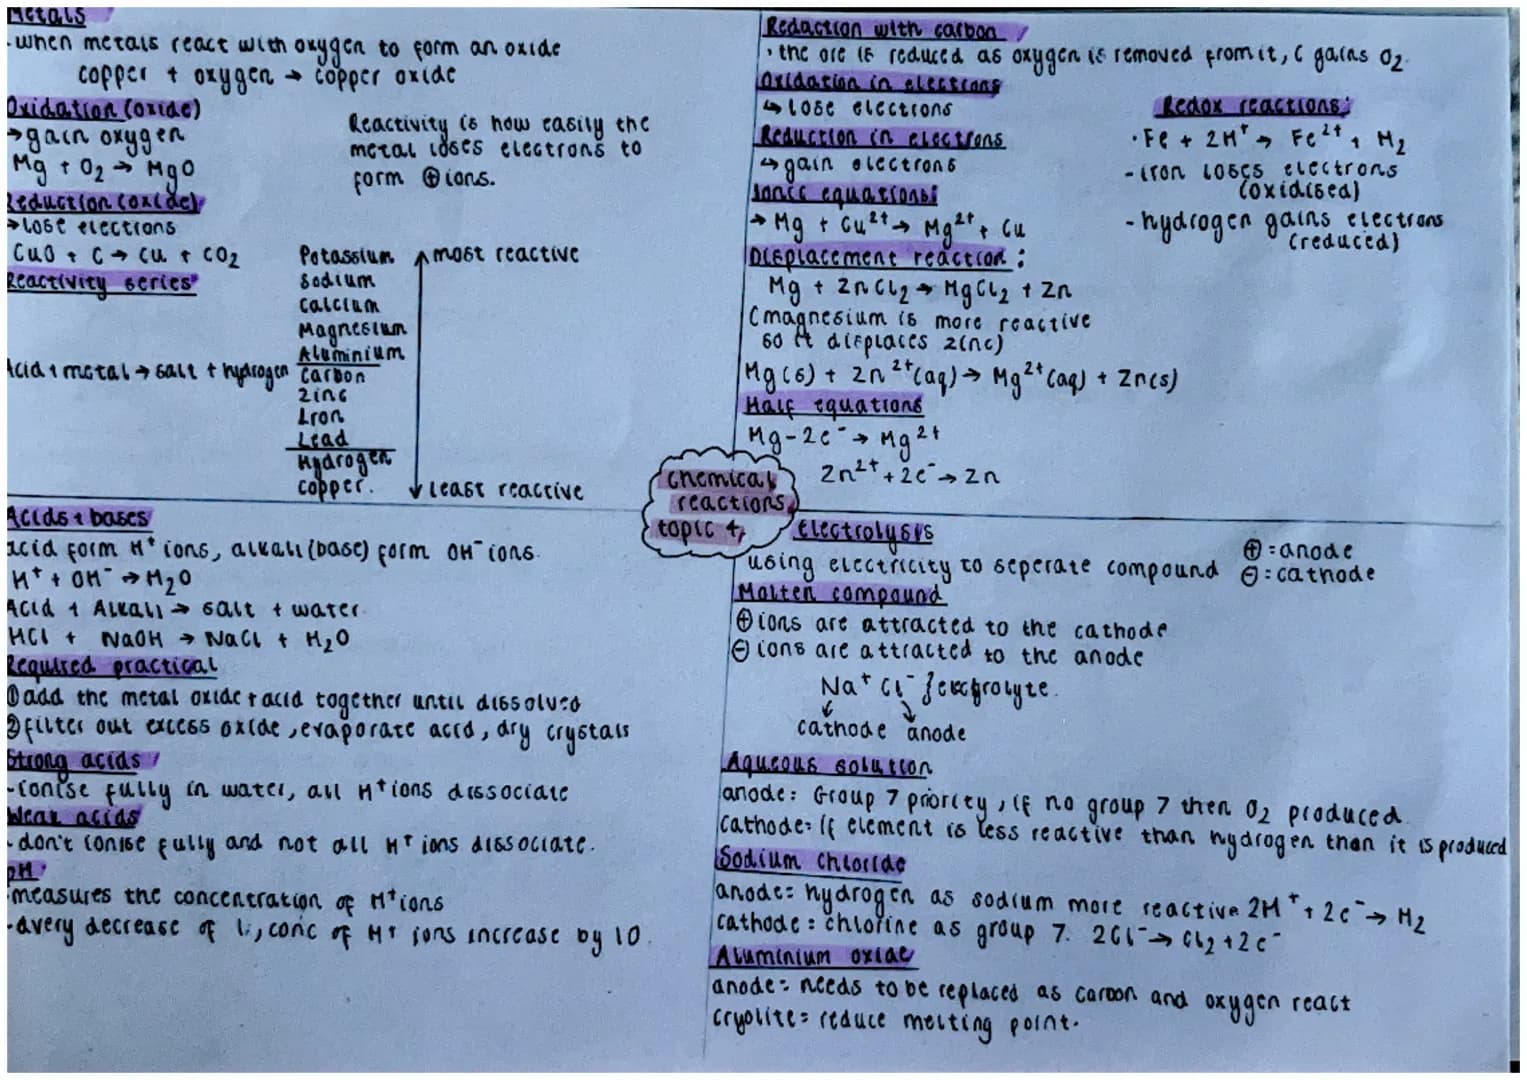 Metals
- when metals react with oxygen to form an oxide
copper + oxygen → copper oxide
Oxidation (oxide)
→ gain oxygen
Mg + O₂ → MgO
Reduction (oxide)
→ lose electrons
CuO + C → Cu + CO₂
Reactivity series
Reactivity is how easily the
metal loses electrons to
form ⊕ ions.
Acid + metal → salt + hydrogen
Potassium
Sodium
Calcium
Magnesium
Aluminium
Carbon
Zinc
Iron
Lead
Hydrogen
copper.
most reactive
least reactive
Redaction with carbon
· the ore is reduced as oxygen is removed from it, C gains O₂
Oxidation in electrons
↳ lose electrons
Reduction in electrons
↳ gain electrons
Ionic equations:
→ Mg + Cu²⁺ → Mg²⁺ + Cu
Displacement reaction:
Mg + ZnCl₂ → MgCl₂ + Zn
(magnesium is more reactive
so it displaces zinc)
Mg(s) + Zn²⁺(aq) → Mg²⁺(aq) + Zn(s)
Half equations
Mg - 2e⁻ → Mg²⁺
Zn²⁺ + 2e⁻ → Zn
Redox reactions:
· Fe + 2H⁺ → Fe²⁺ + H₂
- iron loses electrons
(oxidised)
- hydrogen gains electrons
(reduced)
chemical
reactions
topic 4
Acids + bases
acid form H⁺ ions, alkali (base) form OH⁻ ions.
H⁺ + OH⁻ → H₂O
Acid + Alkali → salt + water
HCl + NaOH → NaCl + H₂O
Required practical
① add the metal oxide + acid together until dissolved
② filter out excess oxide, evaporate acid, dry crystals
Strong acids
- ionise fully in water, all H⁺ ions dissociate
Weak acids
- don't ionise fully and not all H⁺ ions dissociate.
pH
- measures the concentration of H⁺ ions
- avery decrease of 1, conc of H⁺ ions increase by 10.
Electrolysis
using electricity to seperate compound
⊕ = anode
⊖ = cathode
Molten compound
⊕ ions are attracted to the cathode
⊖ ions are attracted to the anode
Na⁺ Cl⁻ } electrolyte.
cathode anode
Aqueous solution
anode: Group 7 priority, if no group 7 then O₂ produced.
cathode = if element is less reactive than hydrogen than it is produced
Sodium chloride
anode = hydrogen as sodium more reactive 2H⁺ + 2e⁻ → H₂
cathode = chlorine as group 7. 2Cl⁻ → Cl₂ + 2e⁻
Aluminium oxide
anode = needs to be replaced as carbon and oxygen react
cryolite = reduce melting point.